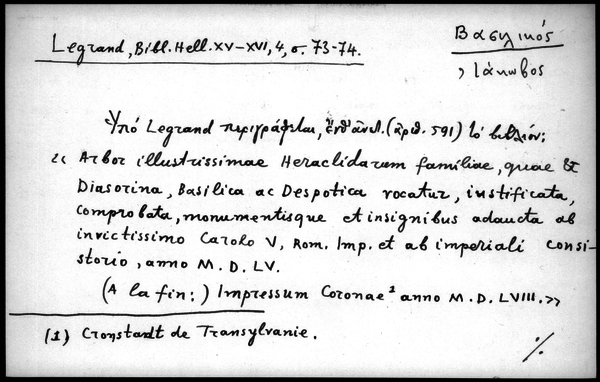 Legrand, Bibl. Hell. XV-XVI, 4, σ. 73-74.
Βασιλικός
Ιάκωβος
Υπό Legrand περιγράφεται, ἔνθ' ἀνωτ. (ἀριθ. 591) τό βιβλίον:
« Arbor illustrissimae Heraclidarum familiae, quae &
Diasorina, Basilica ac Despotica vocatur, iustificata,
comprobata, monumentisque et insignibus adaucta ab
invictissimo Carolo V, Rom. Imp. et ab imperiali consi-
storio, anno M. D. LV.
(A la fin:) Impressum Coronae¹ anno M. D. LVIII. »
(1) Cronstadt de Transylvanie.
%